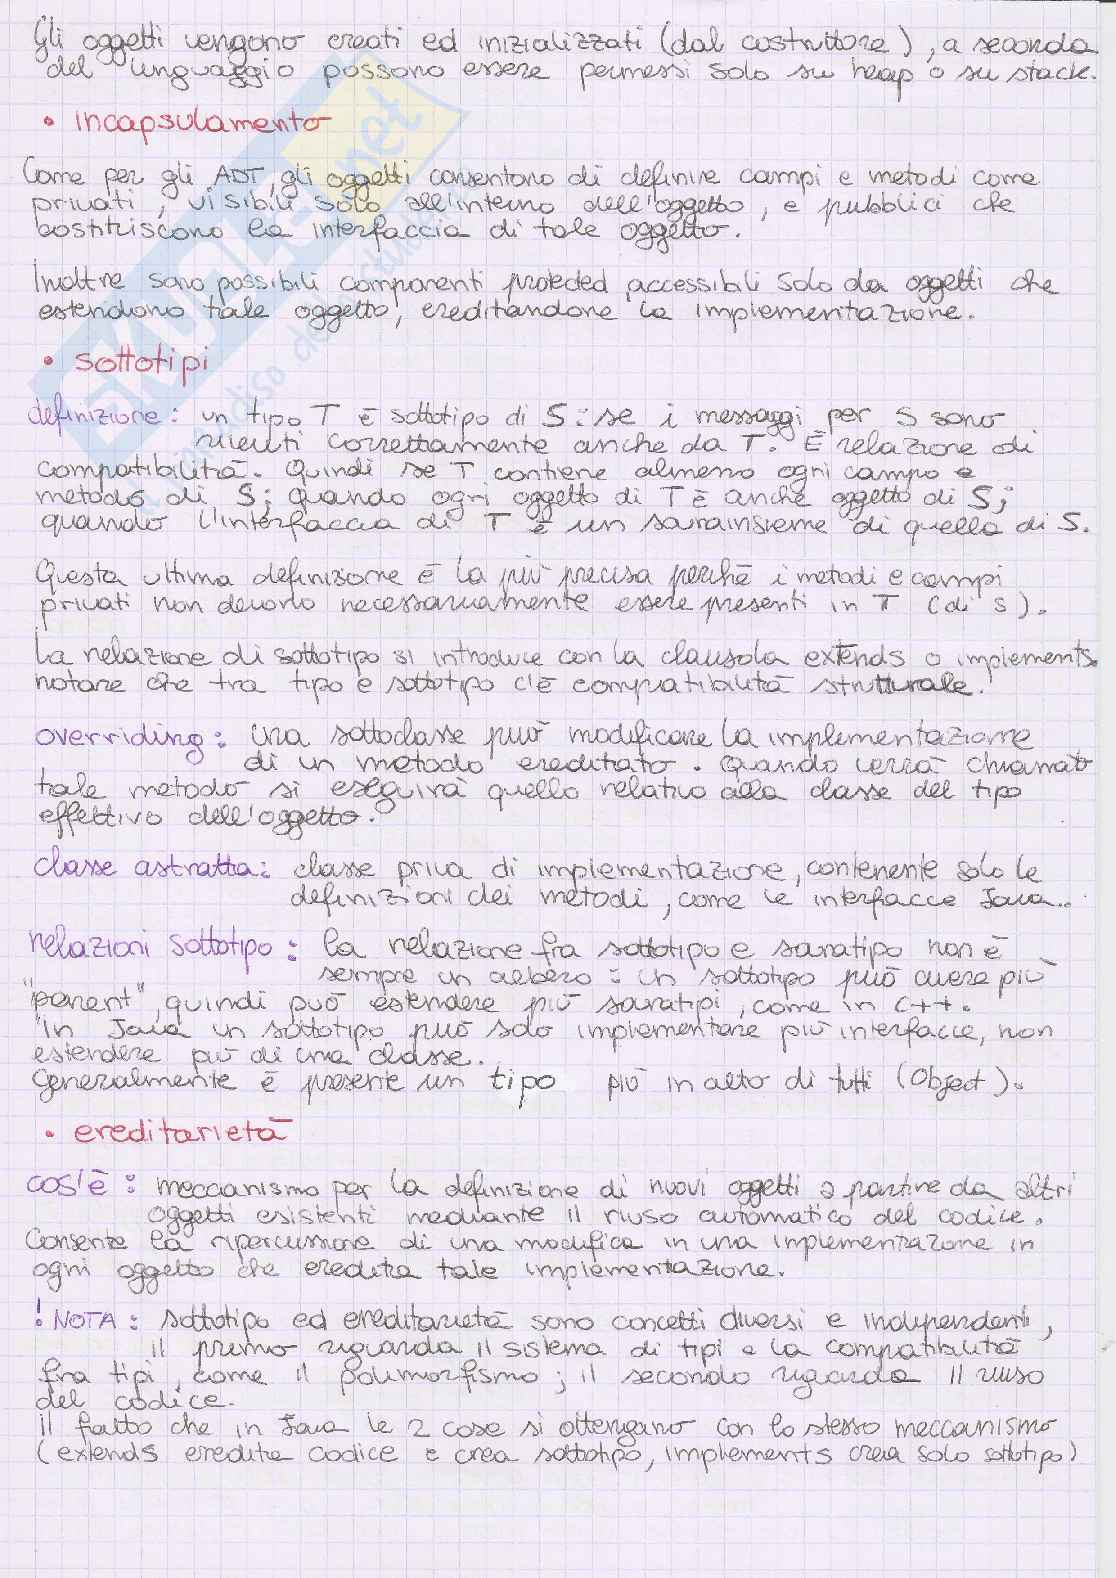 Gli oggetti vengono creati ed inizializzati (dal costruttore), a seconda
del linguaggio possono essere permessi solo su heap o su stack.
• incapsulamento
Come per gli ADT, gli oggetti consentono di definire campi e metodi come
privati, visibili solo all'interno dell'oggetto, e pubblici che
costituiscono la interfaccia di tale oggetto.
Inoltre sono possibili componenti protected accessibili solo da oggetti che
estendono tale oggetto, ereditandone la implementazione.
• sottotipi
definizione: un tipo T è sottotipo di S: se i messaggi per S sono
ricevuti correttamente anche da T. È relazione di
compatibilità. Quindi se T contiene almeno ogni campo e
metodo di S; quando ogni oggetto di T è anche oggetto di S;
quando l'interfaccia di T è un sovrainsieme di quella di S.
Questa ultima definizione è la più precisa perché i metodi e campi
privati non devono necessariamente essere presenti in T (di S).
La relazione di sottotipo si introduce con la clausola extends o implements.
notare che tra tipo e sottotipo c'è compatibilità strutturale.
overriding: una sottoclasse può modificare la implementazione
di un metodo ereditato. Quando verrà chiamato
tale metodo si eseguirà quello relativo alla classe del tipo
effettivo dell'oggetto.
classe astratta: classe priva di implementazione, contenente solo le
definizioni dei metodi, come le interfacce Java..
relazioni sottotipo: la relazione fra sottotipo e sovratipo non è
sempre un albero: un sottotipo può avere più
"parent", quindi può estendere più sovratipi, come in C++.
In Java un sottotipo può solo implementare più interfacce, non
estendere più di una classe.
Generalmente è presente un tipo più in alto di tutti (Object).
• ereditarietà
cos'è: meccanismo per la definizione di nuovi oggetti a partire da altri
oggetti esistenti mediante il riuso automatico del codice.
Consente la ripercussione di una modifica in una implementazione in
ogni oggetto che eredita tale implementazione.
! NOTA: sottotipo ed ereditarietà sono concetti diversi e indipendenti,
il primo riguarda il sistema di tipi e la compatibilità
fra tipi, come il polimorfismo; il secondo riguarda il riuso
del codice.
Il fatto che in Java le 2 cose si ottengano con lo stesso meccanismo
(extends eredita codice e crea sottotipo, implements crea solo sottotipo)